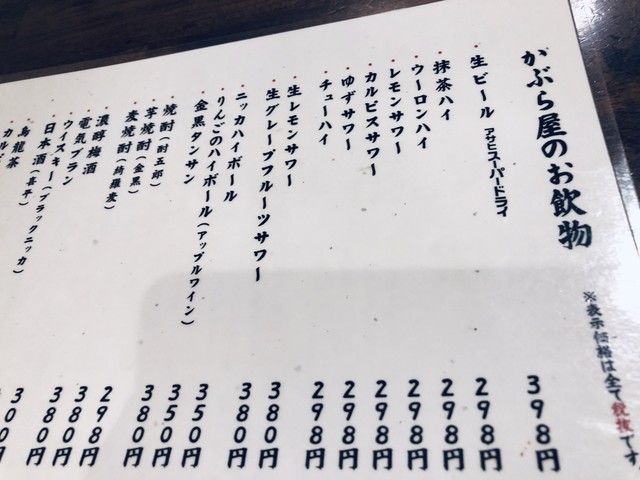 かぶら屋のお飲物
※表示価格は全て税抜です
生ビール アサヒスーパードライ
抹茶ハイ
ウーロンハイ
レモンサワー
カルピスサワー
ゆずサワー
チューハイ
生レモンサワー
生グレープフルーツサワー
ニッカハイボール
りんごのハイボール(アップルワイン)
金黒タンサン
焼酎(酎五郎)
芋焼酎(金黒)
麦焼酎(綺羅麦)
濃醇梅酒
電気ブラン
ウイスキー(ブラックニッカ)
日本酒(喜平)
烏龍茶
カルピ
398円
298円
298円
298円
298円
298円
298円
380円
380円
350円
350円
380円
298円
380円
380円
380円
300円
300円